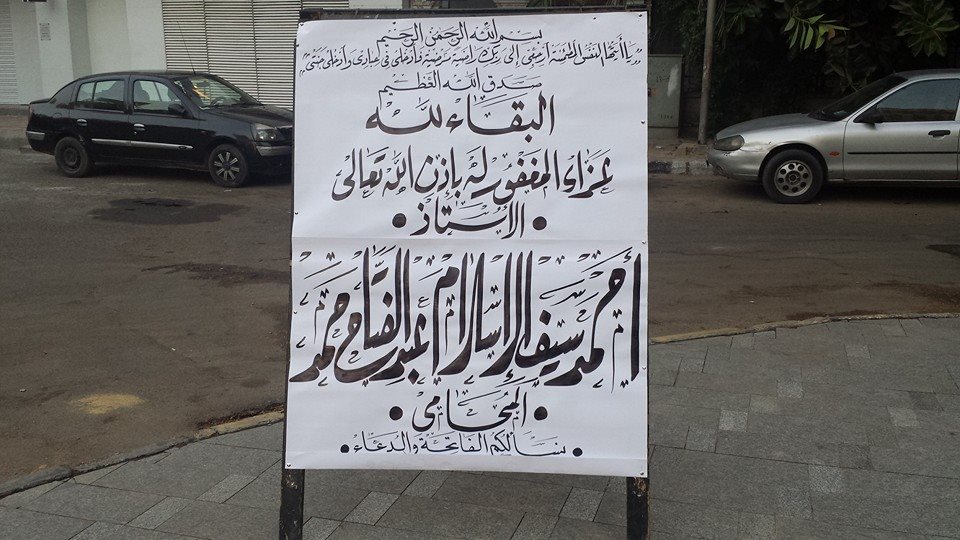 بسم الله الرحمن الرحيم
"يا أيتها النفس المطمئنة ارجعى إلى ربك راضية مرضية فادخلى فى عبادى وادخلى جنتى"
صدق الله العظيم
البقاء لله
عزاء المغفور له بإذن الله تعالى
• الأستاذ •
أحمد سيف الإسلام عبد الفتاح حمد
• المحامى •
• نسألكم الفاتحة والدعاء •